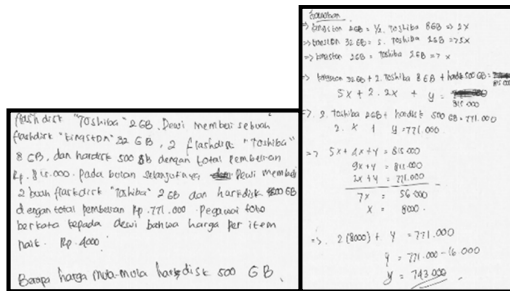 flashdisk "Toshiba" 2 GB. Dewi membeli sebuah
flashdisk "kingston" 32 GB, 2 flashdisk "Toshiba"
8 GB, dan hardisk 500 GB dengan total pembelian
Rp. 815.000. pada bulan selanjutnya Dewi membeli
2 buah flashdisk "Toshiba" 2 GB dan hardisk 500 GB
dengan total pembelian Rp. 771.000. Pegawai toko
berkata kepada dewi bahwa harga per item
naik Rp. 4000
Berapa harga mula-mula hardisk 500 GB.
=> kingston 2GB = 1/2. Toshiba 8GB => 2x
=> kingston 32 GB = 2. Toshiba 2GB => 5x
=> kingston 2GB = Toshiba 2GB => x
=> kingston 32GB + 2 Toshiba 8 GB + hardisk 500 GB =
815.000
5x + 2.2x + y =
815.000
=> 2. Toshiba 2GB + hardisk 500 GB = 771.000
2. x + y = 771.000
=> 5x + 4x + y = 815.000
9x + y = 815.000
2x + y = 771.000
7x = 56.000
x = 8000.
=> 2(8000) + y = 771.000
y = 771.000 - 16.000
y = 743.000